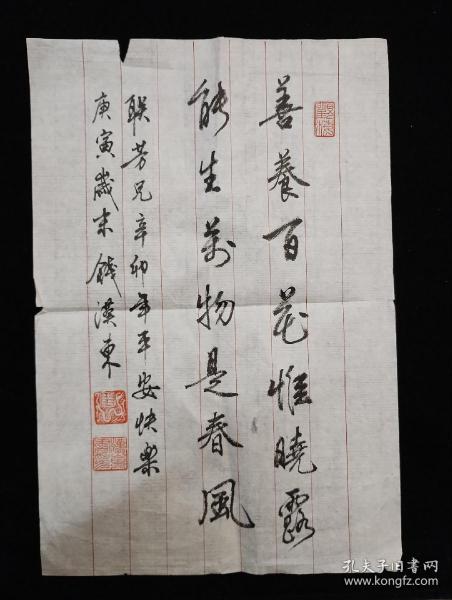 善養百花惟曉露
能生萬物是春風
联芳兄辛卯年平安快樂
庚寅歲末 錢漢東
孔夫子旧书网
www.kongfz.com